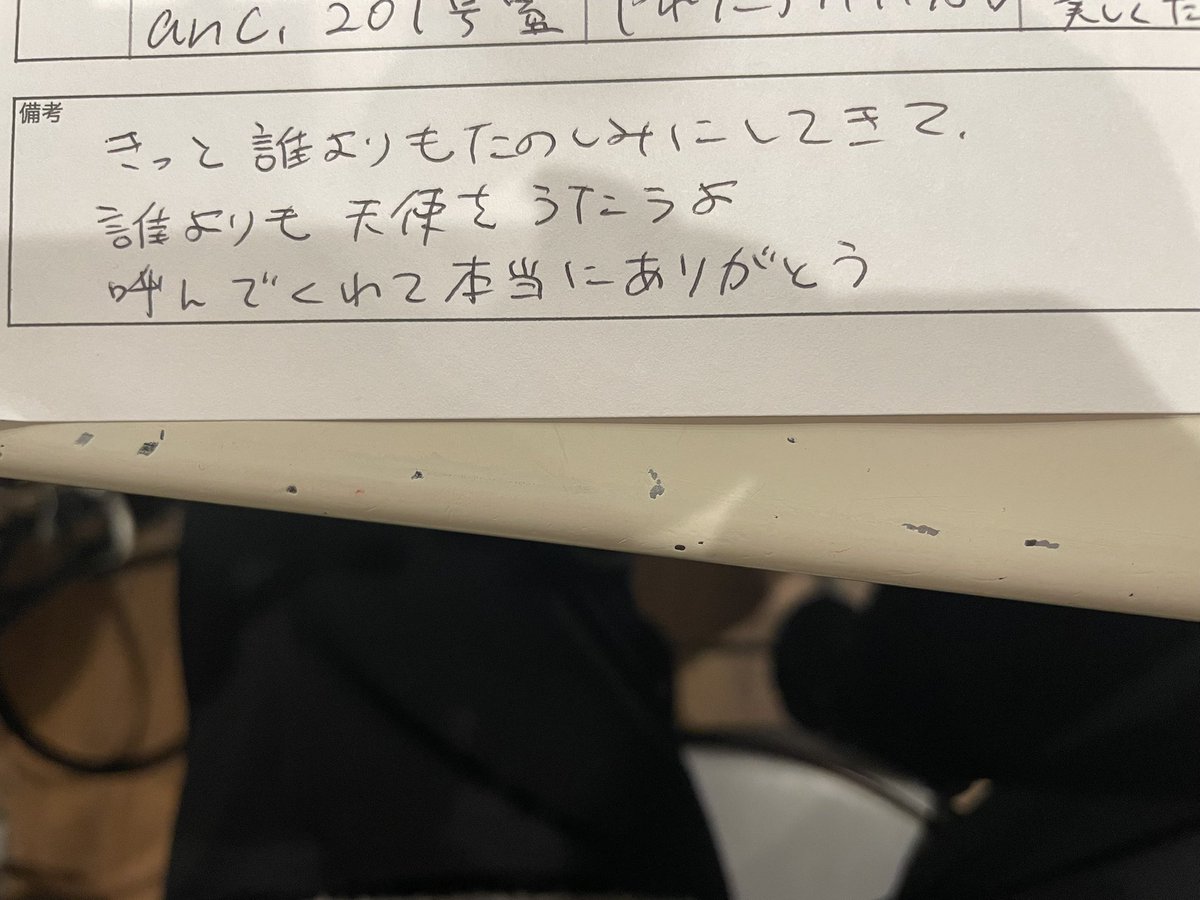 anc. 201号室
美しくた
備考
きっと誰よりもたのしみにしてきて、
誰よりも天使をうたうよ
呼んでくれて本当にありがとう